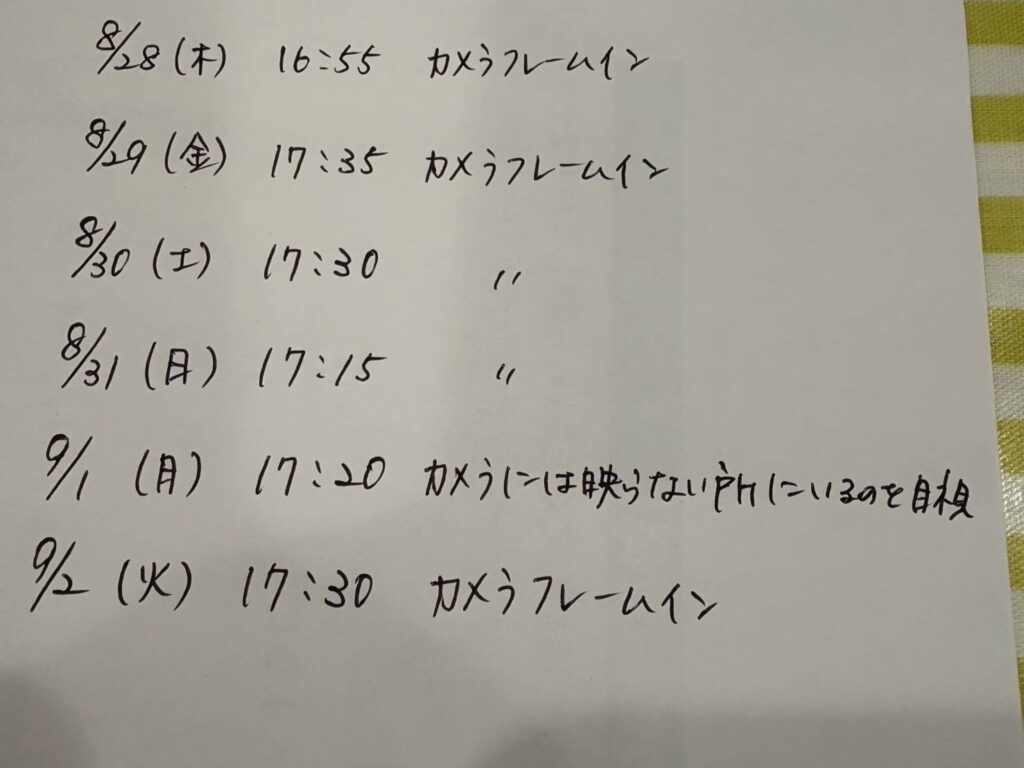 8/28(木) 16:55 カメラフレームイン
8/29(金) 17:35 カメラフレームイン
8/30(土) 17:30 〃
8/31(日) 17:15 〃
9/1(月) 17:20 カメラには映らない所にいるのを目視
9/2(火) 17:30 カメラフレームイン